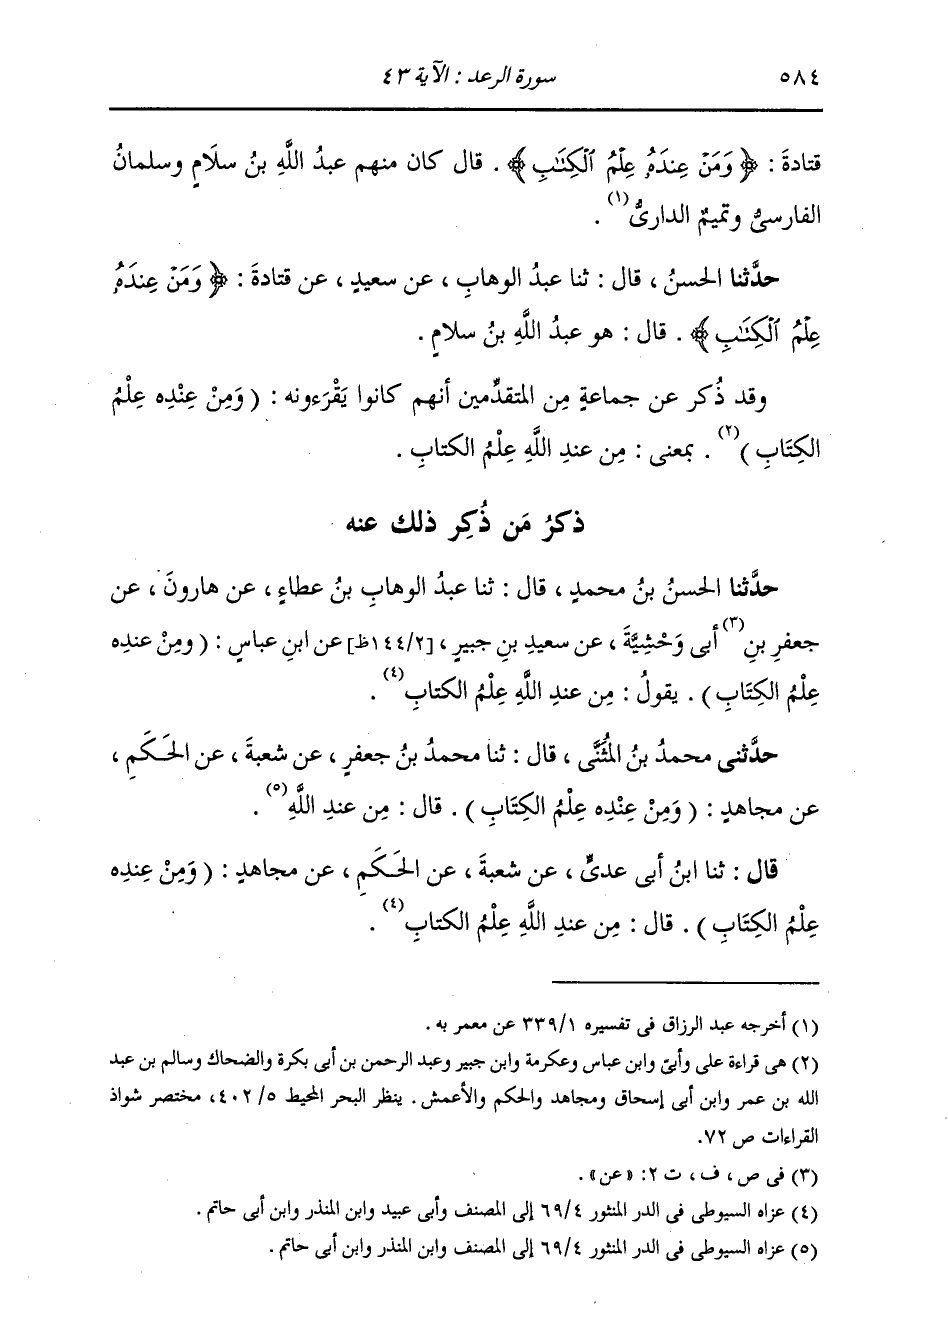 ٥٨٤ سورة الرعد : الآية ٤٣
قتادةَ : ﴿ وَمَنْ عِندَهُۥ عِلْمُ ٱلْكِتَٰبِ ﴾ . قال كان منهم عبدُ اللَّهِ بنُ سلَامٍ وسلمانُ
الفارسىُّ وتميمٌ الدارىُّ(١) .
حدَّثنا الحسنُ ، قال : ثنا عبدُ الوهابِ ، عن سعيدٍ ، عن قتادةَ : ﴿ وَمَنْ عِندَهُۥ
عِلْمُ ٱلْكِتَٰبِ ﴾ . قال : هو عبدُ اللَّهِ بنُ سلامٍ .
وقد ذُكر عن جماعةٍ مِن المتقدِّمين أنهم كانوا يَقْرَءونه : ( وَمِنْ عِنْدِه عِلْمُ
الكِتَابِ )(٢) . بمعنى : مِن عندِ اللَّهِ عِلْمُ الكتابِ .
ذكرُ مَن ذُكِر ذلك عنه
حدَّثنا الحسنُ بنُ محمدٍ ، قال : ثنا عبدُ الوهابِ بنُ عطاءٍ ، عن هارونَ ، عن
جعفرِ بنِ(٣) أبى وَحْشِيَّةَ ، عن سعيدِ بنِ جبيرٍ ، [١٤٤/٢ظ] عن ابنِ عباسٍ : ( ومِنْ عندِه
عِلْمُ الكِتَابِ ) . يقولُ : مِن عندِ اللَّهِ عِلْمُ الكتابِ(٤) .
حدَّثنى محمدُ بنُ المُثَنَّى ، قال : ثنا محمدُ بنُ جعفرٍ ، عن شعبةَ ، عن الحَكَمِ ،
عن مجاهدٍ : ( وَمِنْ عِنْدِه عِلْمُ الكِتَابِ ) . قال : مِن عندِ اللَّهِ(٥) .
قال : ثنا ابنُ أبى عدىٍّ ، عن شعبةَ ، عن الحَكَمِ ، عن مجاهدٍ : ( وَمِنْ عِندِه
عِلْمُ الكِتَابِ ) . قال : مِن عندِ اللَّهِ عِلْمُ الكتابِ(٤) .
(١) أخرجه عبد الرزاق فى تفسيره ٣٣٩/١ عن معمر به .
(٢) هى قراءة على وأبىّ وابن عباس وعكرمة وابن جبير وعبد الرحمن بن أبى بكرة والضحاك وسالم بن عبد
الله بن عمر وابن أبى إسحاق ومجاهد والحكم والأعمش . ينظر البحر المحيط ٤٠٢/٥، مختصر شواذ
القراءات ص ٧٢.
(٣) فى ص ، ف ، ت ٢: «عن» .
(٤) عزاه السيوطى فى الدر المنثور ٦٩/٤ إلى المصنف وأبى عبيد وابن المنذر وابن أبى حاتم .
(٥) عزاه السيوطى فى الدر المنثور ٦٩/٤ إلى المصنف وابن المنذر وابن أبى حاتم .